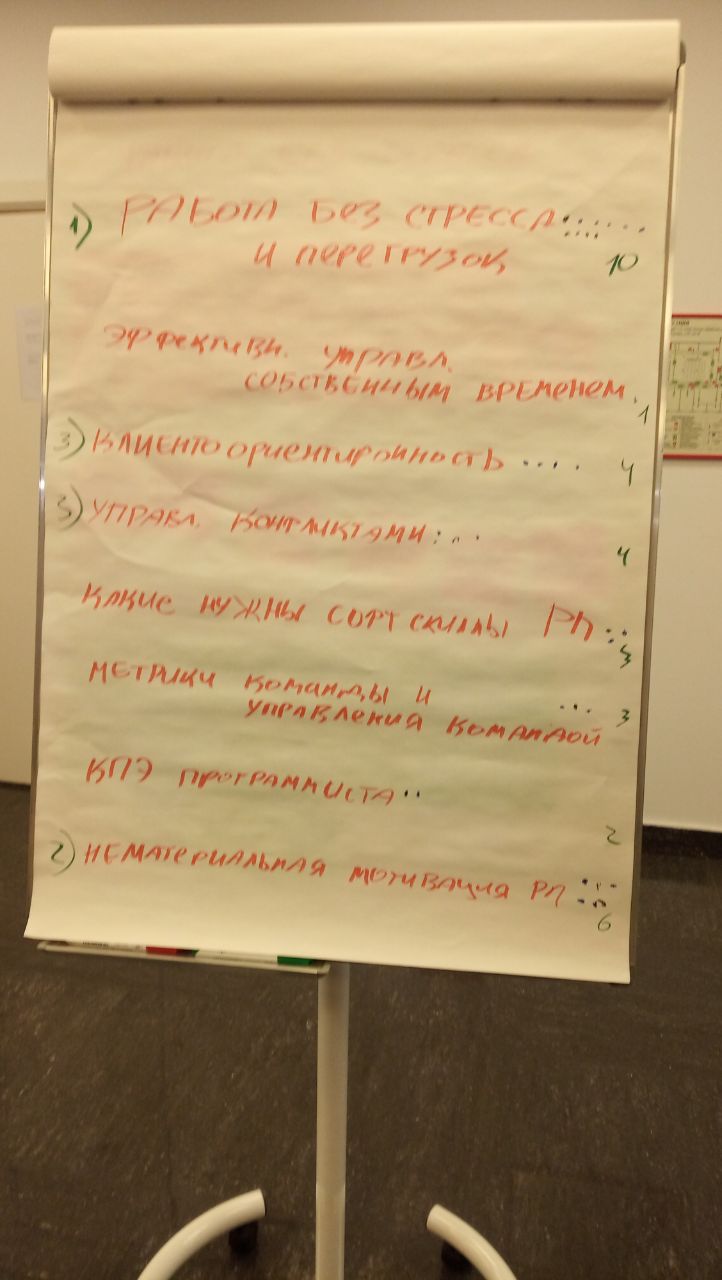 1) РАБОТА БЕЗ СТРЕССА
И ПЕРЕГРУЗОК 10
ЭФФЕКТИВН. УПРАВЛ.
СОБСТВЕННЫМ ВРЕМЕНЕМ. 1
3) КЛИЕНТООРИЕНТИРОННОСТЬ 4
3) УПРАВЛ. КОНФЛИКТАМИ 4
КАКИЕ НУЖНЫ СОФТ СКИЛЛЫ РП
МЕТРИКИ КОМАНДЫ И
УПРАВЛЕНИЯ КОМАНДОЙ 3
КПЭ ПРОГРАММИСТА 2
2) НЕМАТЕРИАЛЬНАЯ МОТИВАЦИЯ РП 6